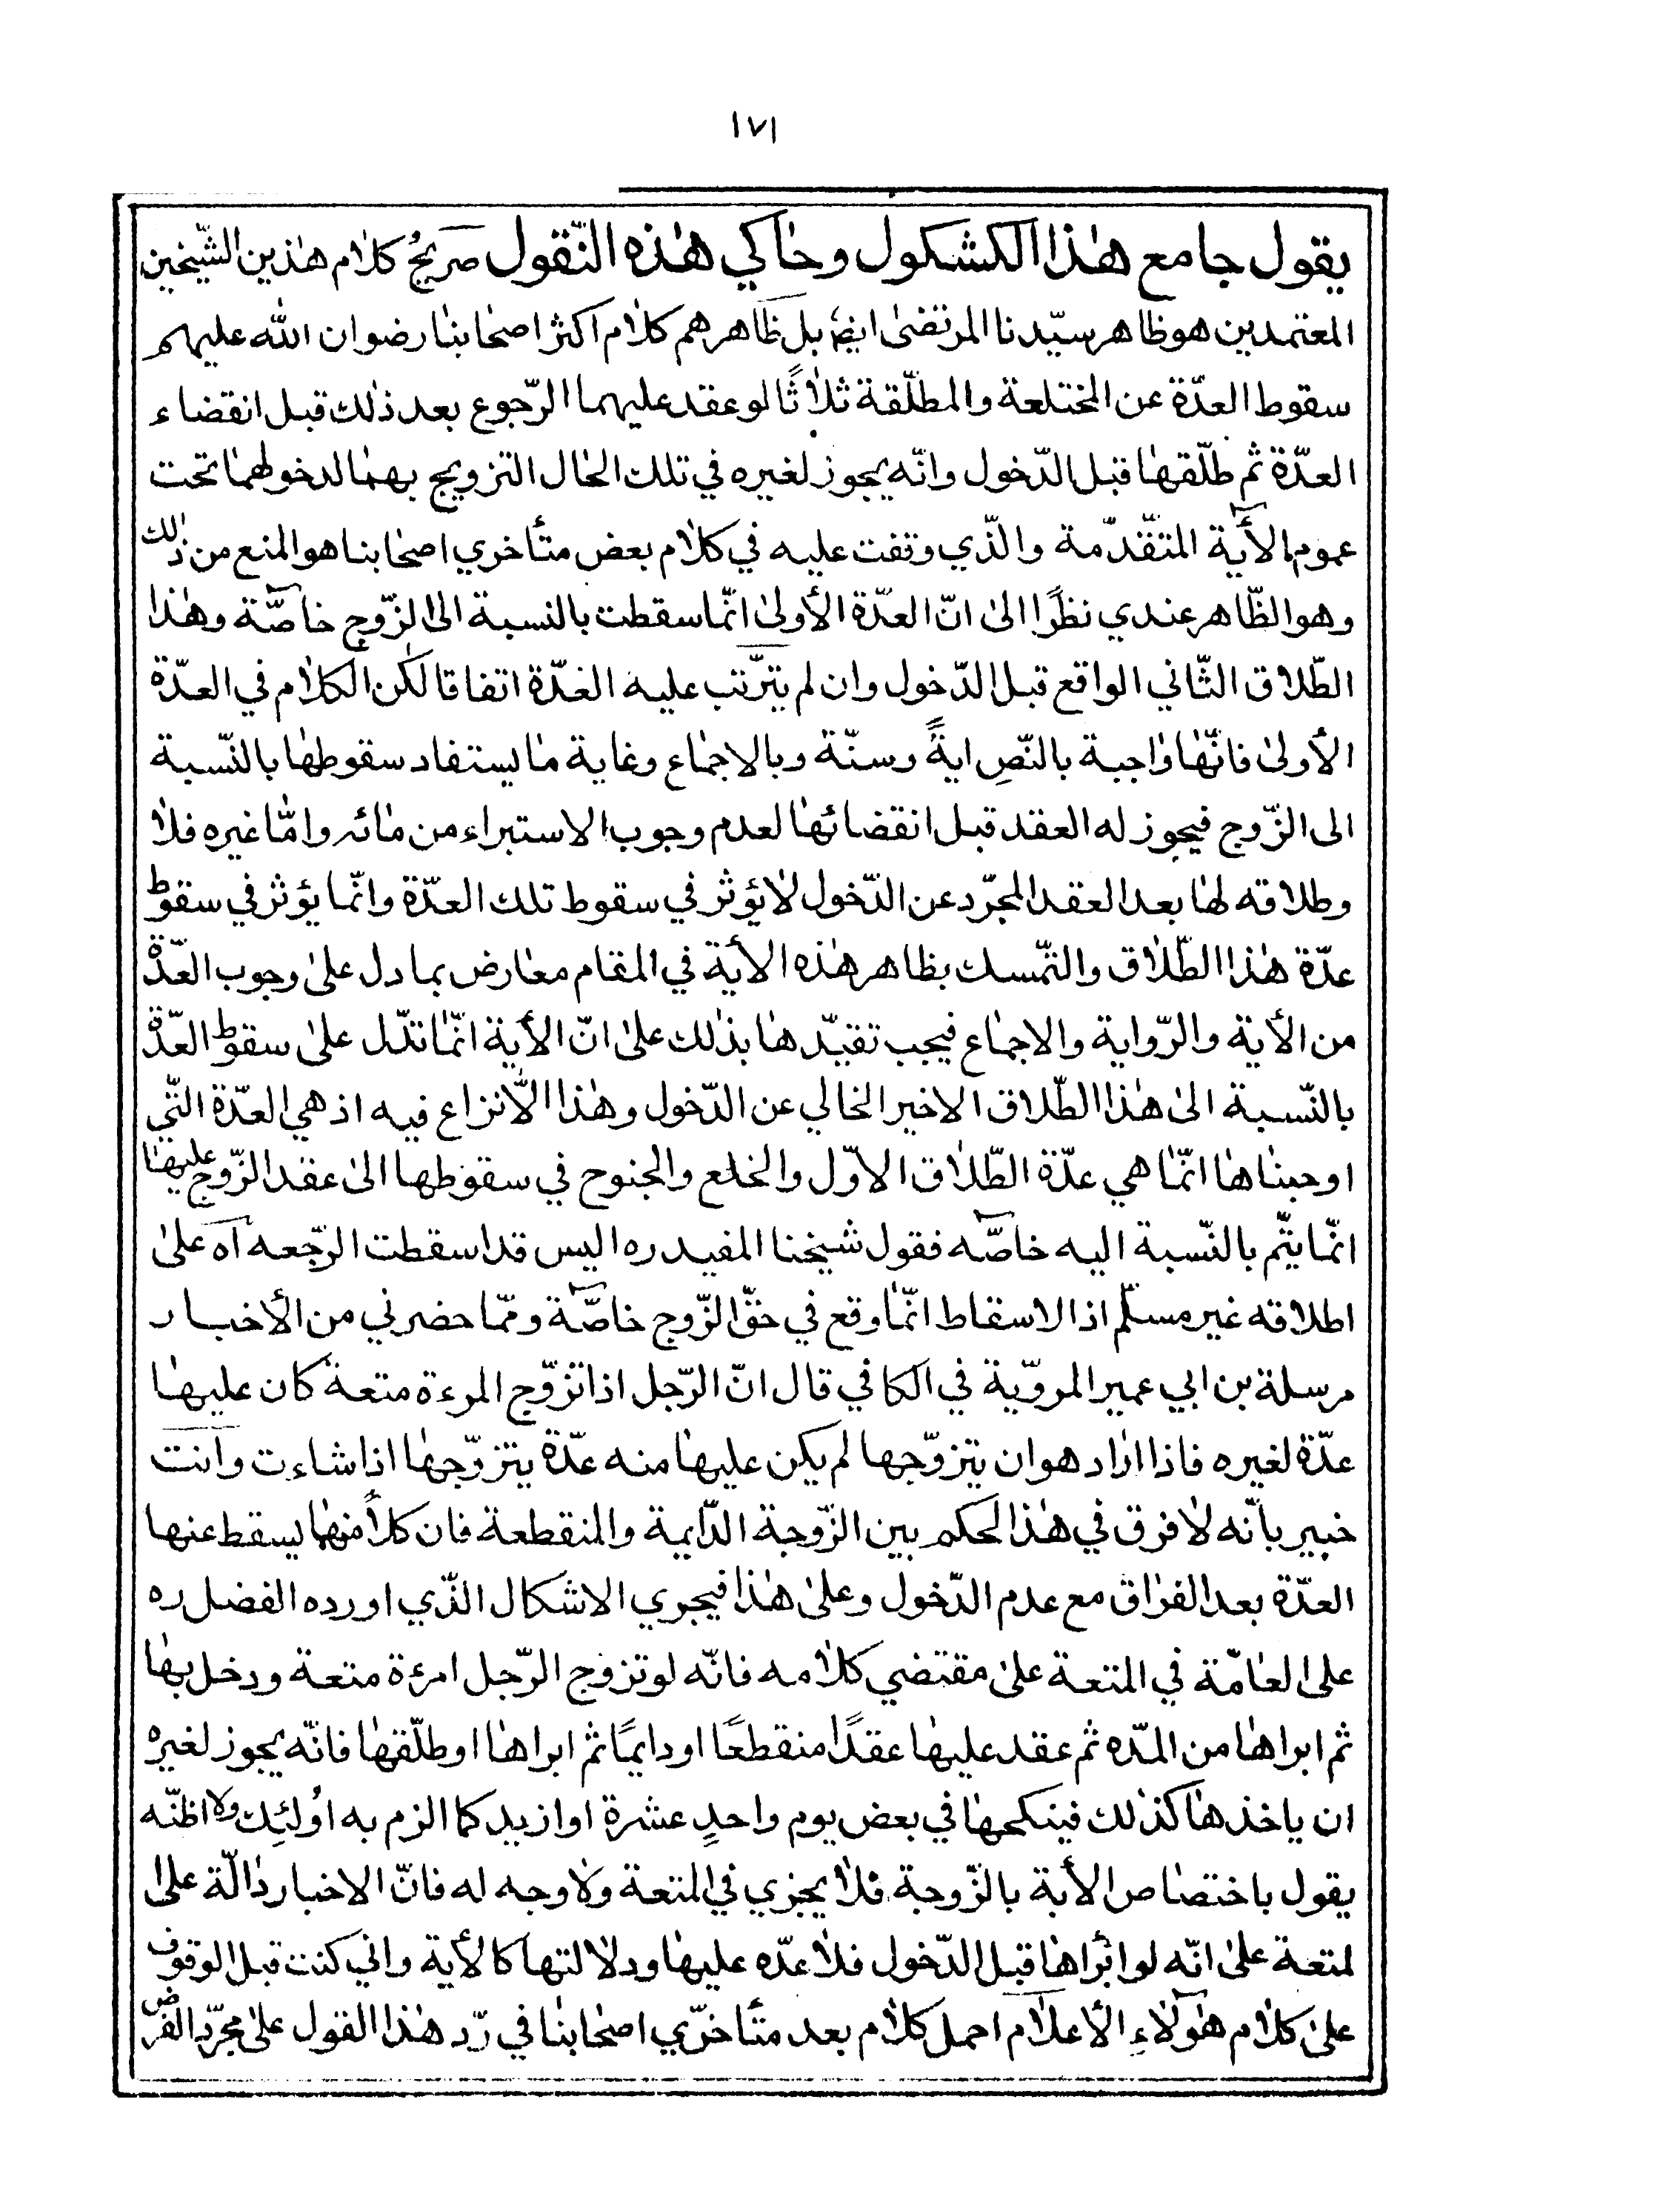 ١٧١
يقول جامع هذا الكشكول وحاكي هذه النّقول صريحُ كلام هذين الشّيخين
المعتمدين هو ظاهر سيّدنا المرتضى ايضا بل ظاهرهم كلام اكثر اصحابنا رضوان الله عليهم
سقوط العدّة عن المختلعة والمطلّقة ثلاثًا لو عقد عليهما الرّجوع بعد ذلك قبل انقضاء
العدّة ثم طلّقها قبل الدّخول وانّه يجوز لغيره في تلك الحال التزويج بهما لدخولهما تحت
عموم الأية المتقدّمة والّذي وقفت عليه في كلام بعض متأخري اصحابنا هو المنع من ذلك
وهو الظّاهر عندي نظرًا الى انّ العدّة الأولى انّما سقطت بالنسبة الى الزّوج خاصّة وهذا
الطّلاق الثّاني الواقع قبل الدّخول وان لم يترّتب عليه العدّة اتفاقا لكن الكلام في العدّة
الأولى فانّها واجبة بالنّصِ ايةً وسنّة وبالاجماع وغاية ما يستفاد سقوطها بالنّسبة
الى الزّوج فيجوز له العقد قبل انقضائها لعدم وجوب الاستبراء من مائه وامّا غيره فلا
وطلاقه لها بعد العقد المجرّد عن الدّخول لا يؤثر في سقوط تلك العدّة وانّما يؤثر في سقوط
عدّة هذا الطّلاق والتّمسك بظاهر هذه الأية في المقام معارض بما دل على وجوب العدّة
من الأية والرّواية والاجماع فيجب تقيّدها بذلك على انّ الأية انّما تدّل على سقوط العدّة
بالنّسبة الى هذا الطّلاق الاخير الخالي عن الدّخول وهذا الّا نزاع فيه اذ هي العدّة التّي
اوجبناها انّما هي عدّة الطّلاق الاوّل والخلع والجنوح في سقوطها الى عقد الزّوج عليها
انّما يتّم بالنّسبة اليه خاصّه فقول شيخنا المفيد ره اليس قد اسقطت الرّجعه آه على
اطلاقه غير مسلّم اذ الاسقاط انّما وقع في حقّ الزّوج خاصّة وممّا حضرني من الأخبار
مرسلة بن ابي عمير المرويّة في الكافي قال انّ الرّجل اذا تزوّج المرءة متعة كان عليها
عدّة لغيره فاذا اراد هو ان يتزوّجها لم يكن عليها منه عدّة يتزوّجها اذا شاءت وانت
خبير بانّه لا فرق في هذا الحكم بين الزّوجة الدّايمة والمنقطعة فان كلاً منهما يسقط عنها
العدّة بعد الفراق مع عدم الدّخول وعلى هذا فيجري الاشكال الذّي اورده الفضل ره
على العامّة في المتعة على مقتضي كلامه فانّه لو تزوج الرّجل امرءة متعة ودخل بها
ثم ابراها من المدّه ثم عقد عليها عقدًا منقطعًا او دايمًا ثم ابراها او طلّقها فانّه يجوز لغيره
ان ياخذها كذلك فينكحها في بعض يوم واحدٍ عشرة او ازيد كما الزم به اولئِك ولا اظنّه
يقول باختصاص الأية بالزّوجة فلا يجزي في المتعة ولا وجه له فانّ الاخبار دالّة على
لمتعة على انّه لو ابْراها قبل الدّخول فلا عدّه عليها ودلالتها كالأية واني كنت قبل الوقوف
على كلام هؤلاءِ الأعلام احمل كلام بعد متأخرّي اصحابنا في ردّ هذا القول على مجرّد الفرض